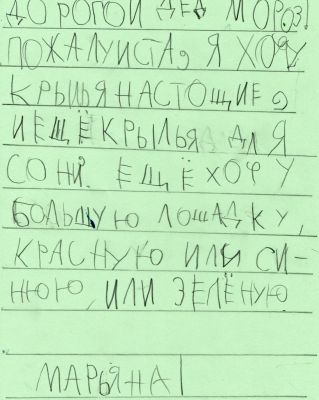 ДОРОГОЙ ДЕД МОРОЗ!
ПОЖАЛУИСТА, Я ХОЧУ
КРЫЛЬЯ НАСТОЩИЕ,
И ЕЩЁ КРЫЛЬЯ ДЛЯ
СОНИ. ЕЩЁ ХОЧУ
БОЛЬШУЮ ЛОШАДКУ,
КРАСНУЮ ИЛИ СИ-
НЮЮ, ИЛИ ЗЕЛЁНУЮ
МАРЬЯНА